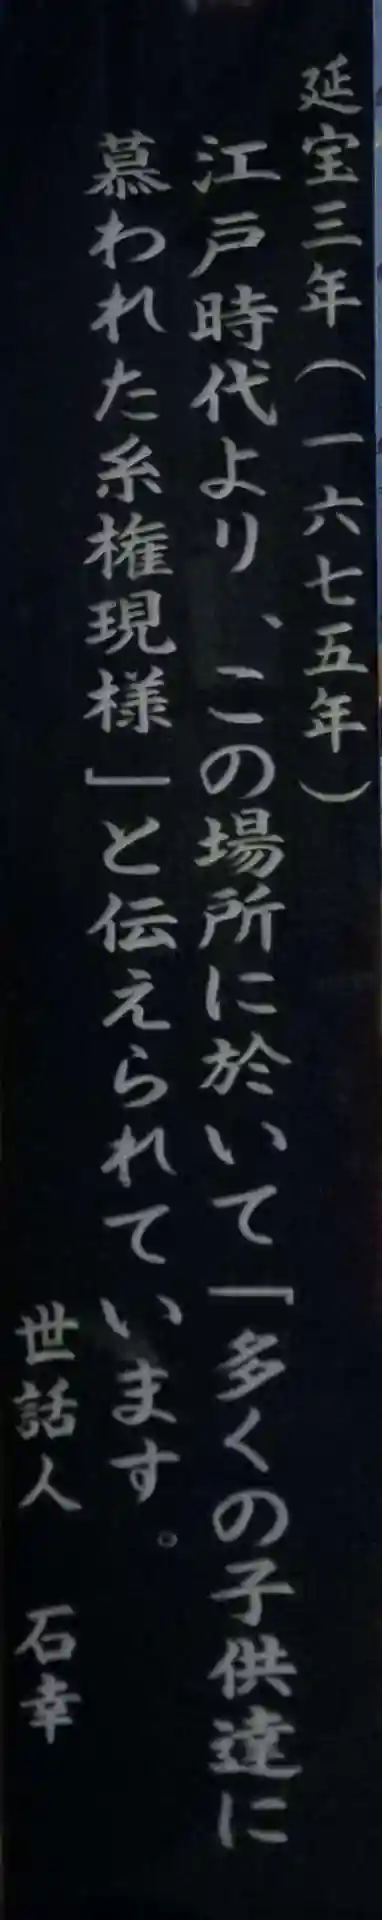 延宝三年(一六七五年)
江戸時代より、この場所に於いて「多くの子供達に
慕われた糸権現様」と伝えられています。
世話人 石幸